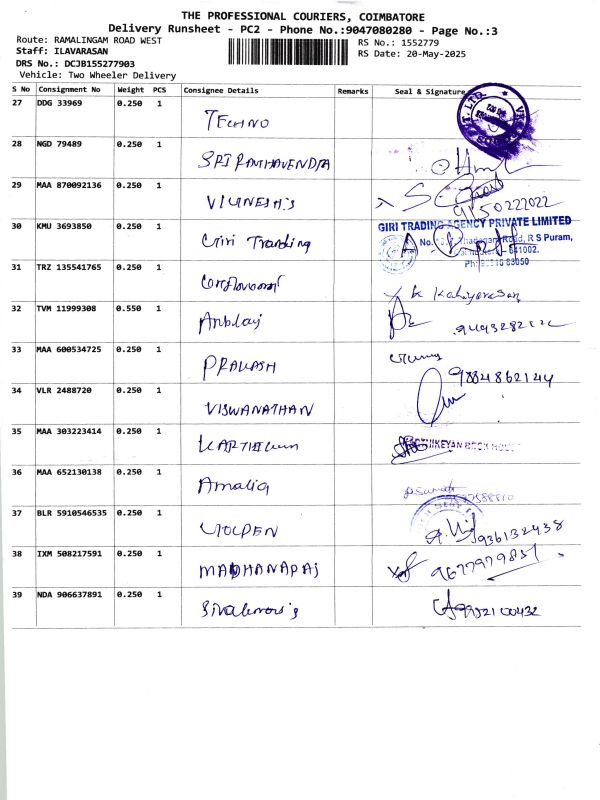 THE PROFESSIONAL COURIERS, COIMBATORE
Delivery Runsheet - PC2 - Phone No.:9047080280 - Page No.:3
Route: RAMALINGAM ROAD WEST
RS No.: 1552779
Staff: ILAVARASAN
RS Date: 20-May-2025
DRS No.: DCJB155277903
Vehicle: Two Wheeler Delivery
S No Consignment No Weight PCS Consignee Details Remarks Seal & Signature
27 DDG 33969 0.250 1
TECHNO
28 NGD 79489 0.250 1
29 MAA 870092136 0.250 1
9150222022
30 KMU 3693850 0.250 1
Giri Trading
GIRI TRADING AGENCY PRIVATE LIMITED
Road, R S Puram,
641002.
31 TRZ 135541765 0.250 1
32 TVM 11999308 0.550 1
33 MAA 600534725 0.250 1
PRAKASH
9884862144
34 VLR 2488720 0.250 1
VISWANATHAN
35 MAA 303223414 0.250 1
36 MAA 652130138 0.250 1
Amalia
37 BLR 5910546535 0.250 1
GOLDEN
38 IXM 508217591 0.250 1
MADHANARAJ
39 NDA 906637891 0.250 1
9952100432